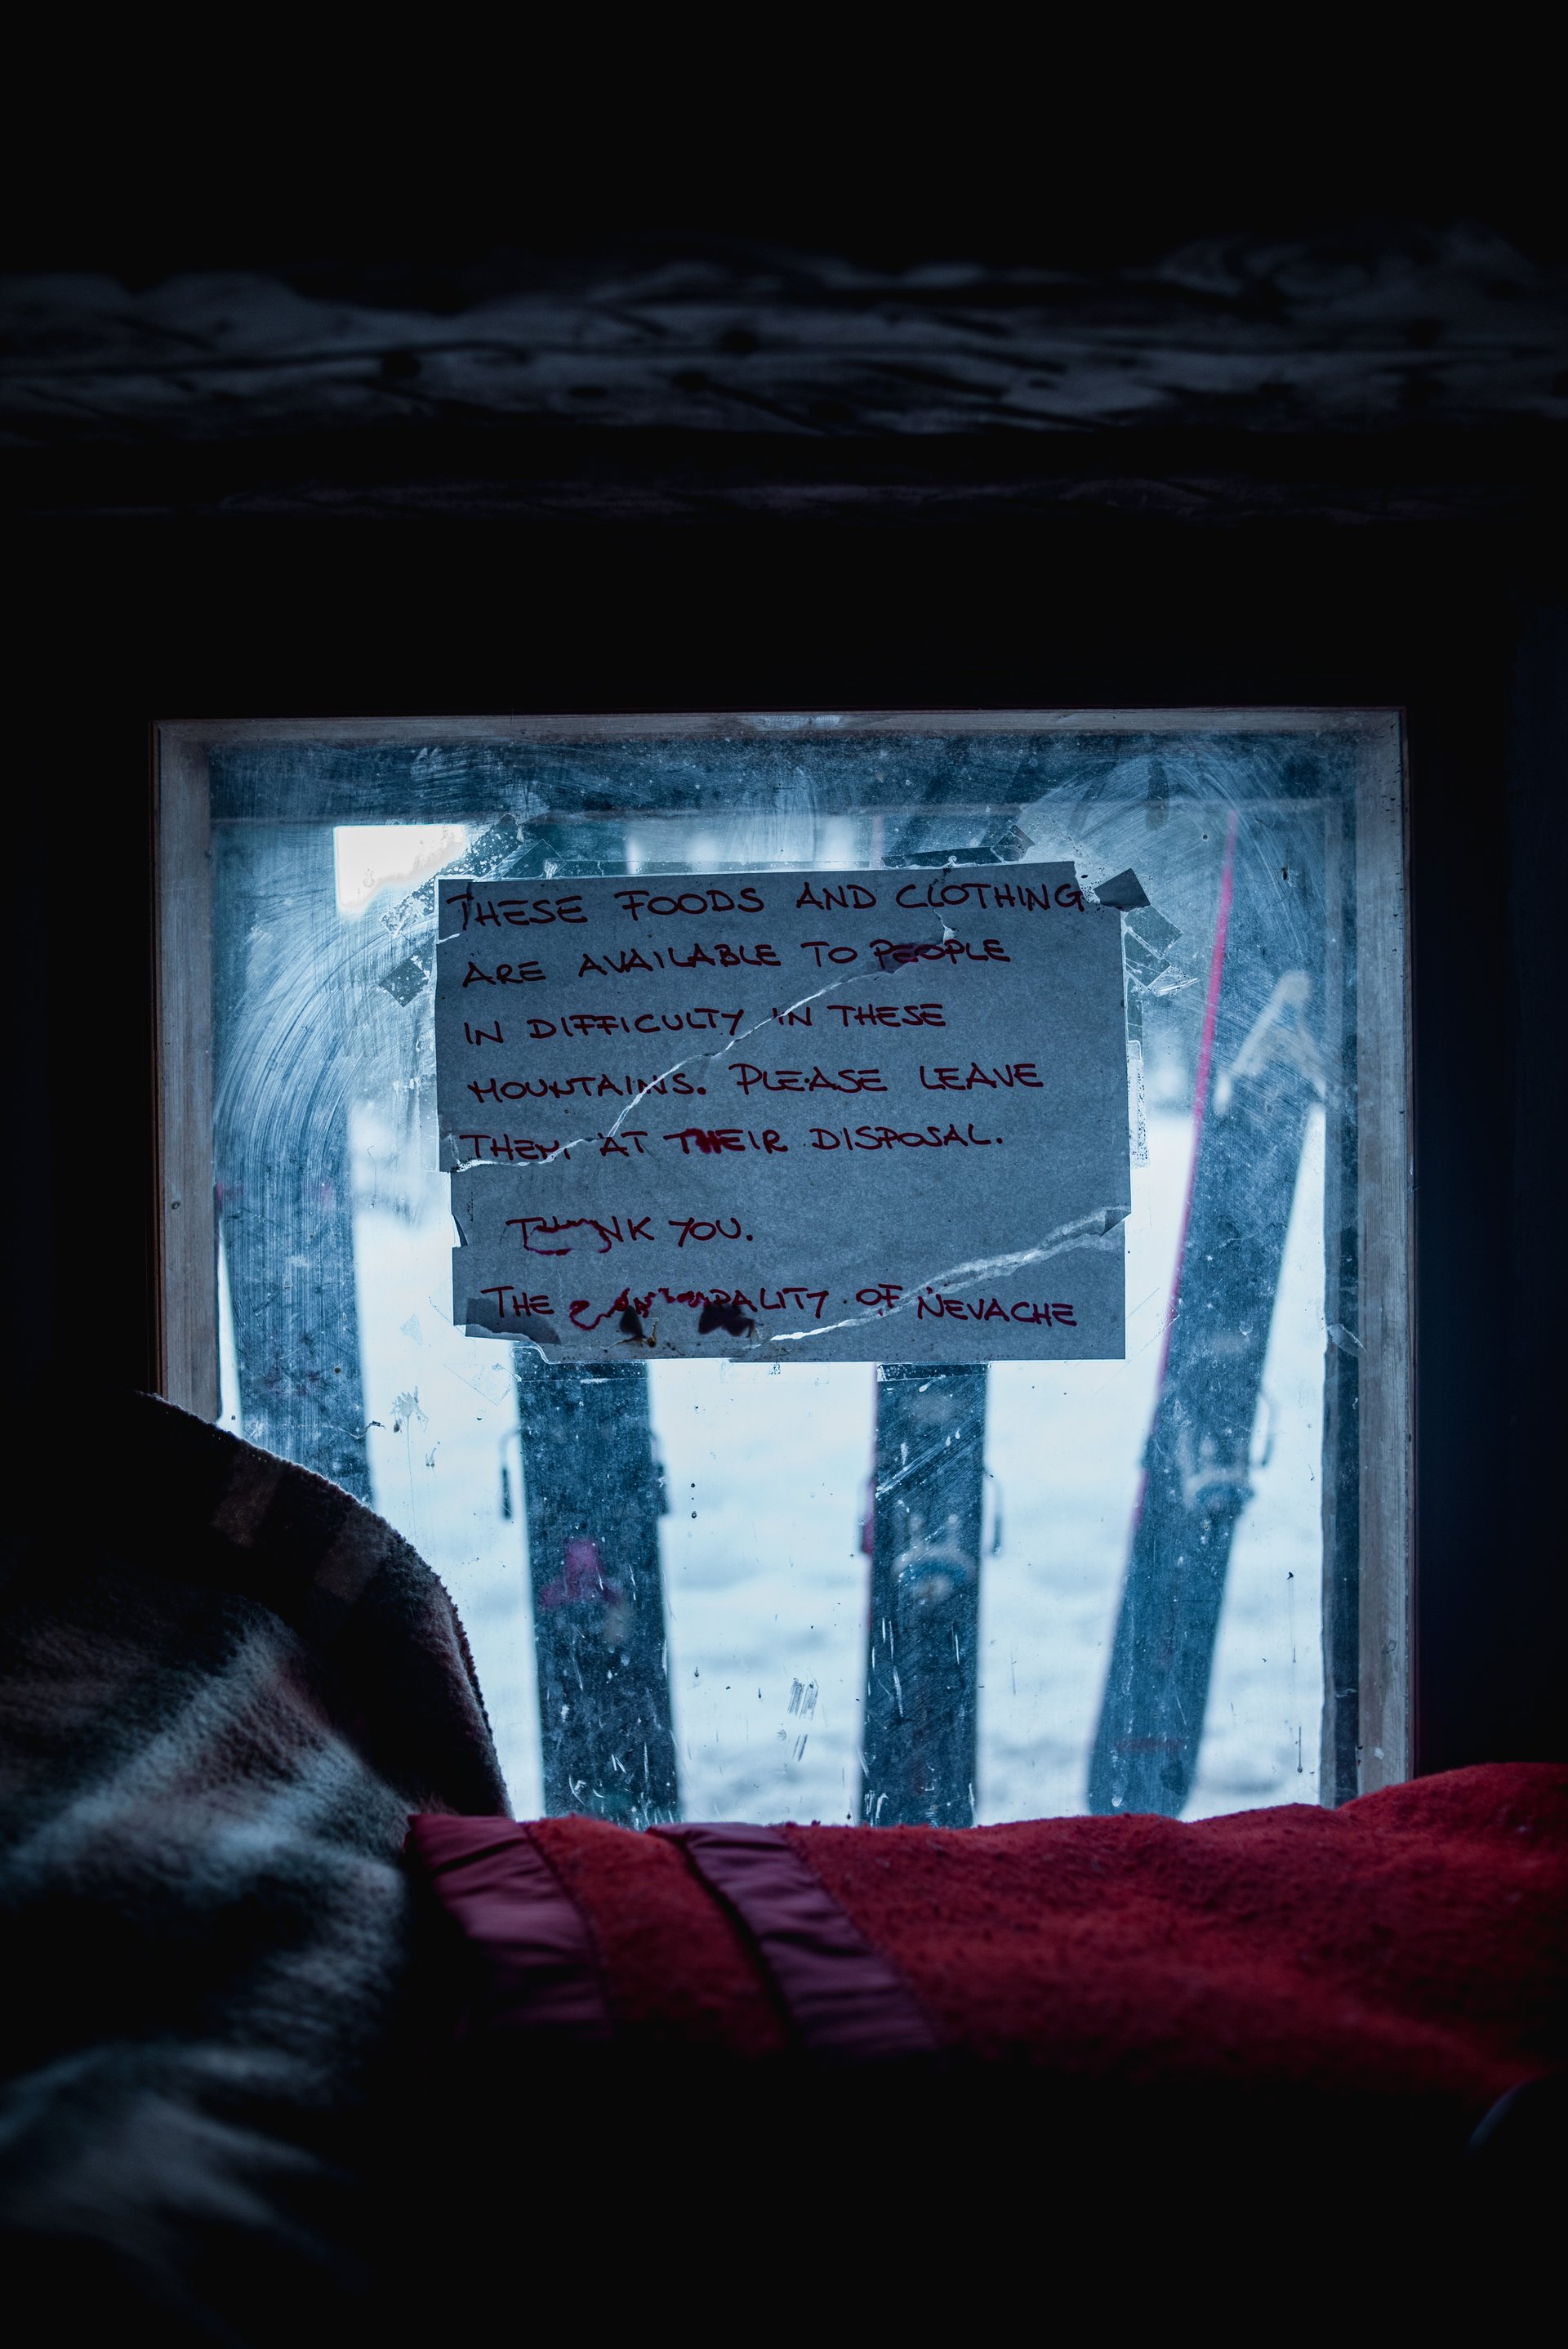 THESE FOODS AND CLOTHING
ARE AVAILABLE TO PEOPLE
IN DIFFICULTY IN THESE
MOUNTAINS. PLEASE LEAVE
THEM AT THEIR DISPOSAL.
THANK YOU.
THE OF NEVACHE